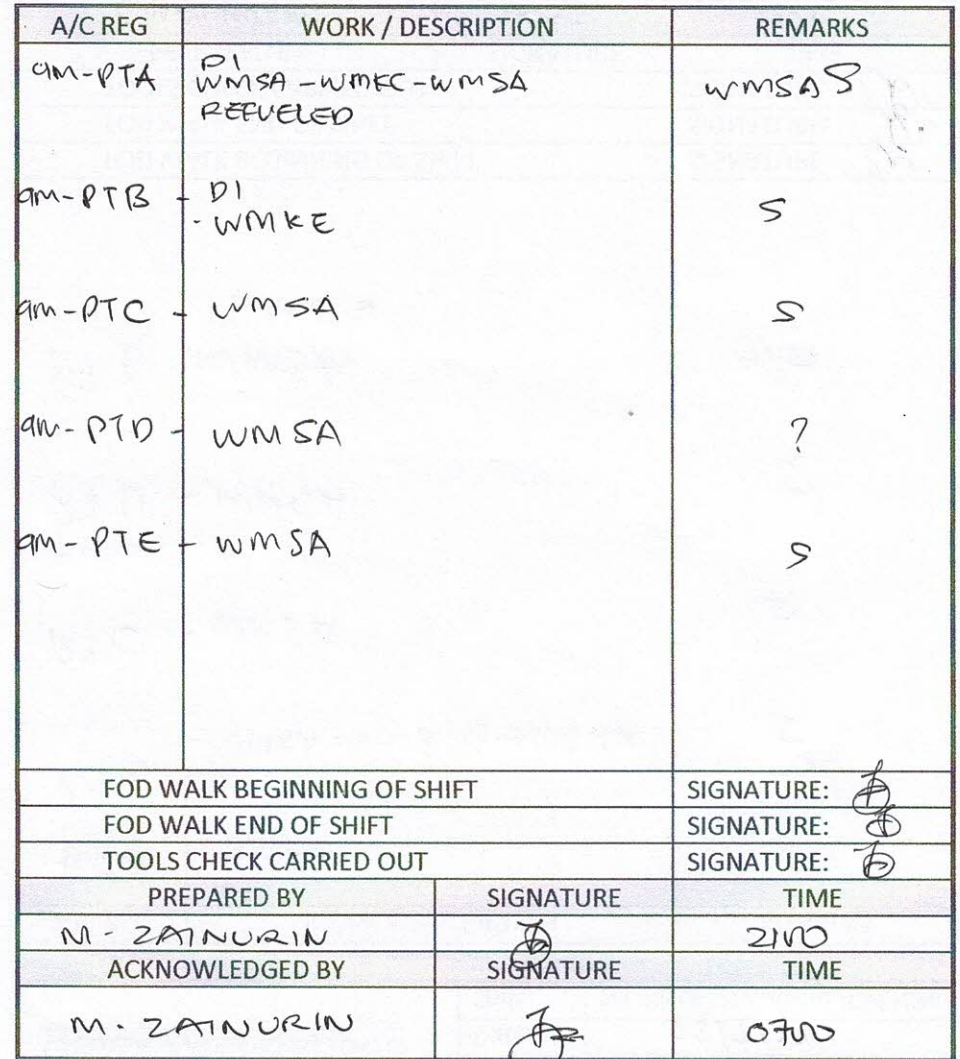 A/C REG WORK / DESCRIPTION REMARKS
9M-PTA DI
WMSA-WMKC-WMSA WMSA S
REFUELED
9M-PTB - DI
- WMKE S
9M-PTC - WMSA S
9M-PTD - WMSA ?
9M-PTE - WMSA S
FOD WALK BEGINNING OF SHIFT SIGNATURE:
FOD WALK END OF SHIFT SIGNATURE:
TOOLS CHECK CARRIED OUT SIGNATURE:
PREPARED BY SIGNATURE TIME
M. ZAINURIN 2100
ACKNOWLEDGED BY SIGNATURE TIME
M. ZAINURIN 0700